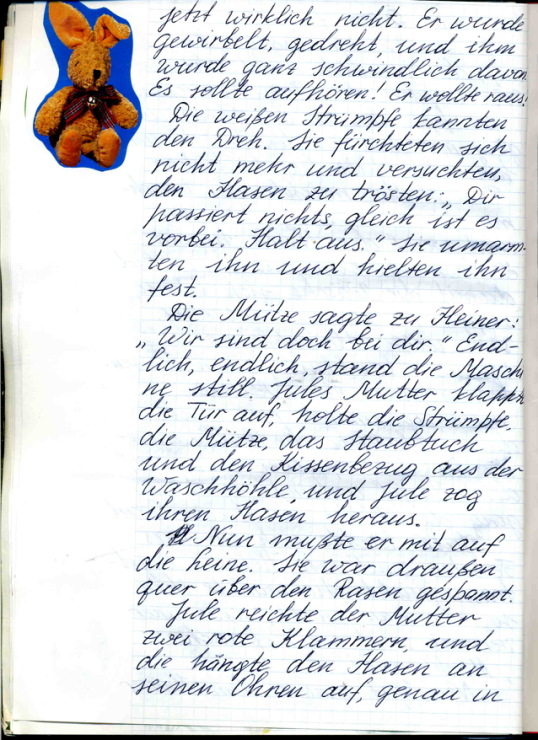 jetzt wirklich nicht. Er wurde
gewirbelt, gedreht, und ihm
wurde ganz schwindlich davon
Es sollte aufhören! Er wollte raus!
Die weißen Strümpfe kannten
den Dreh. Sie fürchteten sich
nicht mehr und versuchten,
den Hasen zu trösten: „Dir
passiert nichts, gleich ist es
vorbei. Halt aus." Sie umarm-
ten ihn und hielten ihn
fest.
Die Mütze sagte zu Heiner:
„Wir sind doch bei dir." End-
lich, endlich, stand die Maschi
ne still. Jules Mutter klappte
die Tür auf, holte die Strümpfe,
die Mütze, das Staubtuch
und den Kissenbezug aus der
Waschhöhle, und Jule zog
ihren Hasen heraus.
Nun mußte er mit auf
die Leine. Sie war draußen
quer über den Rasen gespannt.
Jule reichte der Mutter
zwei rote Klammern, und
die hängte den Hasen an
seinen Ohren auf, genau in